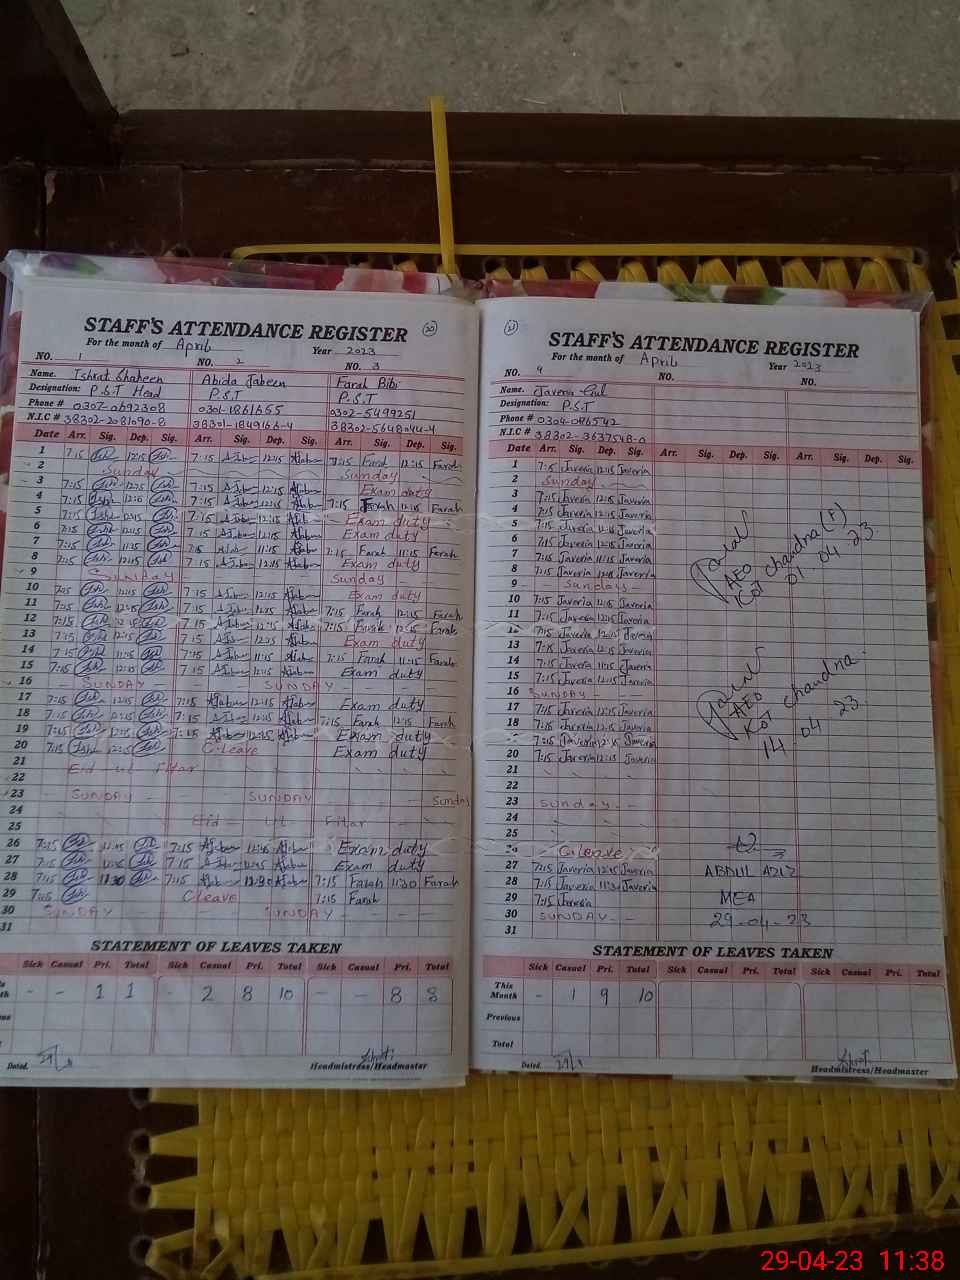 STAFF'S ATTENDANCE REGISTER 20
For the month of April Year 2023
NO. 1 NO. 2 NO. 3
Name. Ishrat Shaheen Abida Jabeen Farah Bibi
Designation: P.S.T Head P.S.T P.S.T
Phone # 0307-0692308 0301-1861655 0302-5499251
N.I.C # 38302-2081090-8 38301-1849166-4 38302-5648044-4
Date Arr. Sig. Dep. Sig. Arr. Sig. Dep. Sig. Arr. Sig. Dep. Sig.
1 7:15 12:15 7:15 12:15 7:15 Farah 12:15 Farah
2 Sunday Sunday
3 7:15 12:15 7:15 12:15 Exam duty
4 7:15 12:15 7:15 12:15 7:15 Farah 12:15 Farah
5 7:15 12:15 7:15 12:15 Exam duty
6 7:15 12:15 7:15 12:15 Exam duty
7 7:15 11:15 7:15 11:15 7:15 Farah 11:15 Farah
8 7:15 12:15 7:15 12:15 Exam duty
9 SUNDAY Sunday
10 7:15 12:15 7:15 12:15 Exam duty
11 7:15 12:15 7:15 12:15 7:15 Farah 12:15 Farah
12 7:15 12:15 7:15 12:15 7:15 Farah 12:15 Farah
13 7:15 12:15 7:15 12:15 Exam duty
14 7:15 11:15 7:15 11:15 7:15 Farah 11:15 Farah
15 7:15 12:15 7:15 12:15 Exam duty
16 SUNDAY SUNDAY
17 7:15 12:15 7:15 12:15 Exam duty
18 7:15 12:15 7:15 12:15 7:15 Farah 12:15 Farah
19 7:15 12:15 7:15 12:15 Exam duty
20 7:15 12:15 C.Leave Exam duty
21 Eid ul Fitar
22
23 SUNDAY SUNDAY Sunday
24 Eid ul Fitar
25
26 7:15 12:15 7:15 Exam duty
27 7:15 7:15 12:15 Exam duty
28 7:15 11:30 7:15 7:15 Farah 11:30 Farah
29 7:15 C leave 7:15 Farah
30 SUNDAY SUNDAY
31
STATEMENT OF LEAVES TAKEN
Sick Casual Pri. Total Sick Casual Pri. Total Sick Casual Pri. Total
- - 1 1 - 2 8 10 - - 8 8
Dated. Headmistress/Headmaster
STAFF'S ATTENDANCE REGISTER 21
For the month of April Year 2023
NO. 4 NO. NO.
Name. Javeria Gul
Designation: P.S.T
Phone # 0304-0986542
N.I.C # 38302-3637548-0
Date Arr. Sig. Dep. Sig. Arr. Sig. Dep. Sig. Arr. Sig. Dep. Sig.
1 7:15 Javeria 12:15 Javeria
2 Sunday
3 7:15 Javeria 12:15 Javeria
4 7:15 Javeria 12:15 Javeria
5 7:15 Javeria 12:15 Javeria
6 7:15 Javeria 12:15 Javeria
7 7:15 Javeria 11:15 Javeria
8 7:15 Javeria 12:15 Javeria
9 Sundays
10 7:15 Javeria 12:15 Javeria
11 7:15 Javeria 12:15 Javeria
12 7:15 Javeria 12:15 Javeria
13 7:15 Javeria 12:15 Javeria
14 7:15 Javeria 11:15 Javeria
15 7:15 Javeria 12:15 Javeria
16 SUNDAY
17 7:15 Javeria 12:15 Javeria
18 7:15 Javeria 12:15 Javeria
19 7:15 Javeria 12:15 Javeria
20 7:15 Javeria 12:15 Javeria
21
22
23 Sunday
24
25
26 C.Leave
27 7:15 Javeria 12:15 Javeria
28 7:15 Javeria 11:30 Javeria
29 7:15 Javeria
30 SUNDAY
31
AEO
Kot Chandna (F)
01 04 23
AEO
Kot Chandna
14 04 23
ABDUL AZIZ
MEA
29-04-23
STATEMENT OF LEAVES TAKEN
Sick Casual Pri. Total Sick Casual Pri. Total Sick Casual Pri. Total
This Month - 1 9 10
Previous
Total
Dated. Headmistress/Headmaster
29-04-23 11:38